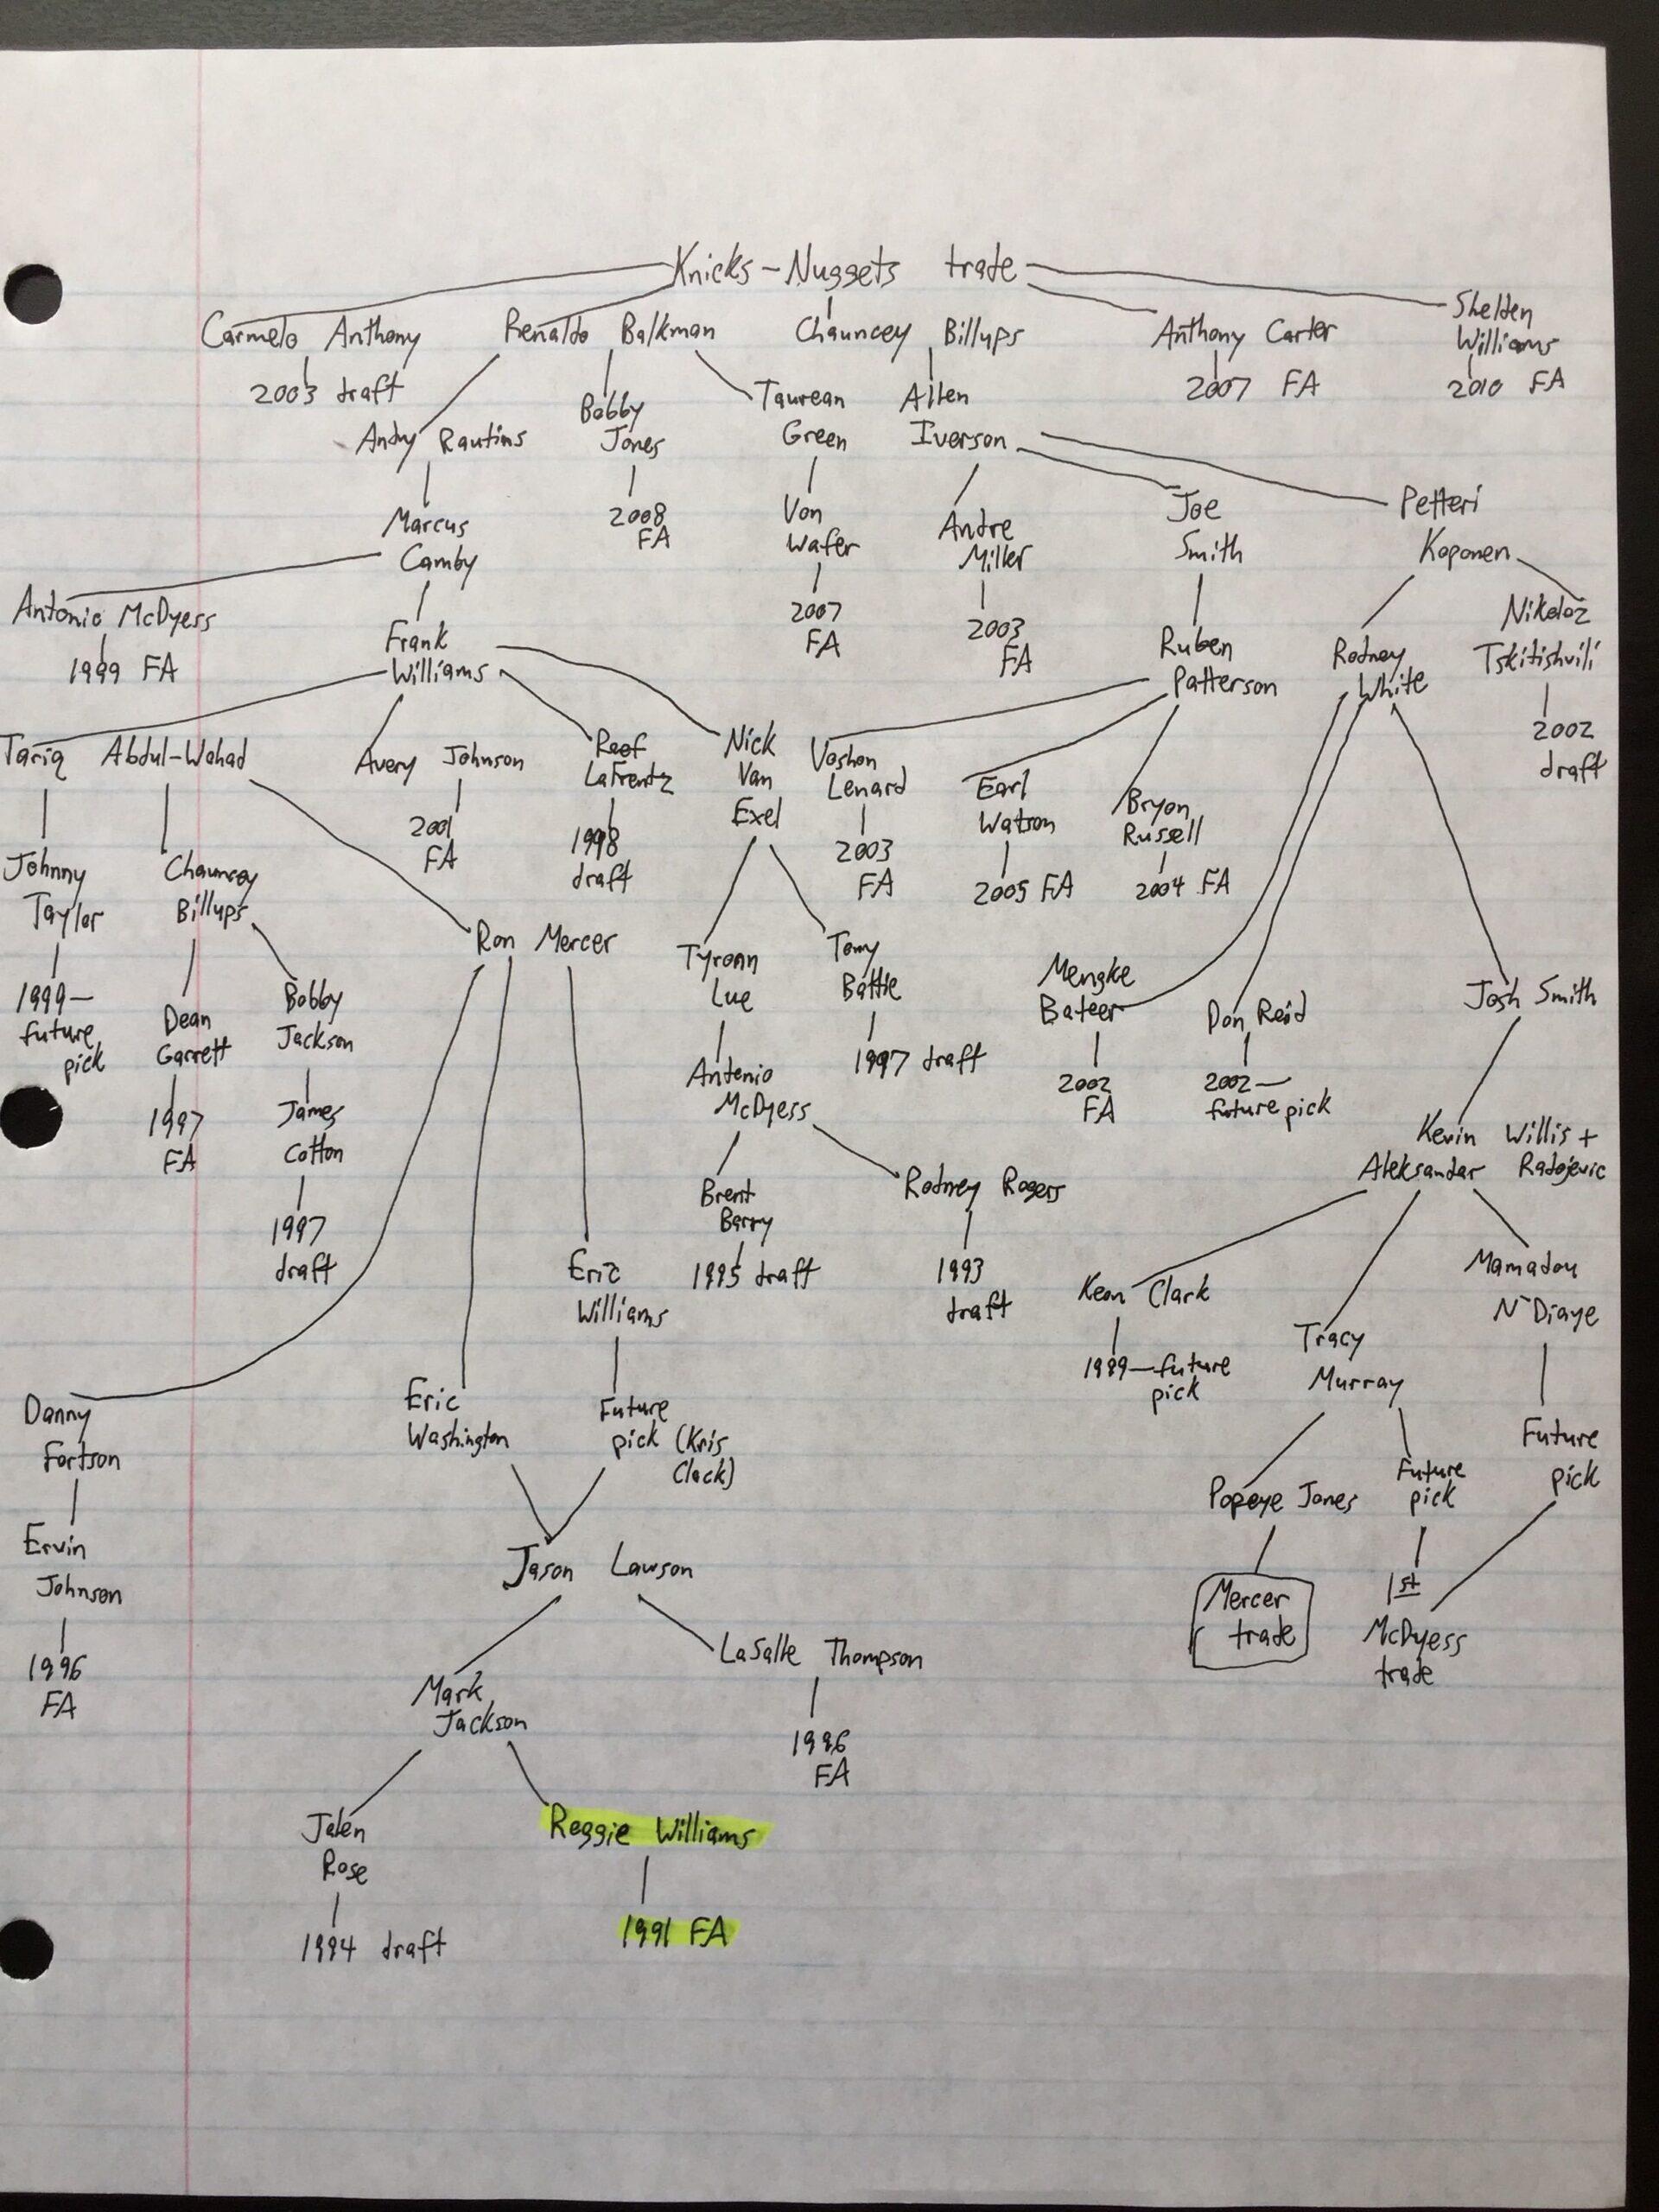 Knicks-Nuggets trade
Carmelo Anthony
2003 draft
Renaldo Balkman
Chauncey Billups
Anthony Carter
2007 FA
Shelden
Williams
2010 FA
Andy Rautins
Bobby
Jones
2008
FA
Taurean
Green
Von
Wafer
2007
FA
Allen
Iverson
Andre
Miller
2003
FA
Joe
Smith
Petteri
Koponen
Marcus
Camby
Antonio McDyess
1999 FA
Frank
Williams
Ruben
Patterson
Rodney
White
Nikoloz
Tskitishvili
2002
draft
Tariq Abdul-Wahad
Avery Johnson
2001
FA
Raef
LaFrentz
1998
draft
Nick
Van
Exel
Voshon
Lenard
2003
FA
Earl
Watson
2005 FA
Bryon
Russell
2004 FA
Johnny
Taylor
1999—
future
pick
Chauncey
Billups
Dean
Garrett
1997
FA
Bobby
Jackson
James
Cotton
1997
draft
Ron Mercer
Tyronn
Lue
Tony
Battie
1997 draft
Antonio
McDyess
Brent
Barry
1995 draft
Rodney Rogers
1993
draft
Mengke
Bateer
2002
FA
Don Reid
2002—
future pick
Josh Smith
Kevin Willis +
Aleksandar Radojevic
Keon Clark
1999—future
pick
Tracy
Murray
Mamadou
N'Diaye
Danny
Fortson
Ervin
Johnson
1996
FA
Eric
Washington
Eric
Williams
Future
pick (Kris
Clack)
Popeye Jones
Mercer
trade
Future
pick
1st
McDyess
trade
Future
pick
Jason Lawson
Mark
Jackson
LaSalle Thompson
1996
FA
Jalen
Rose
1994 draft
Reggie Williams
1991 FA